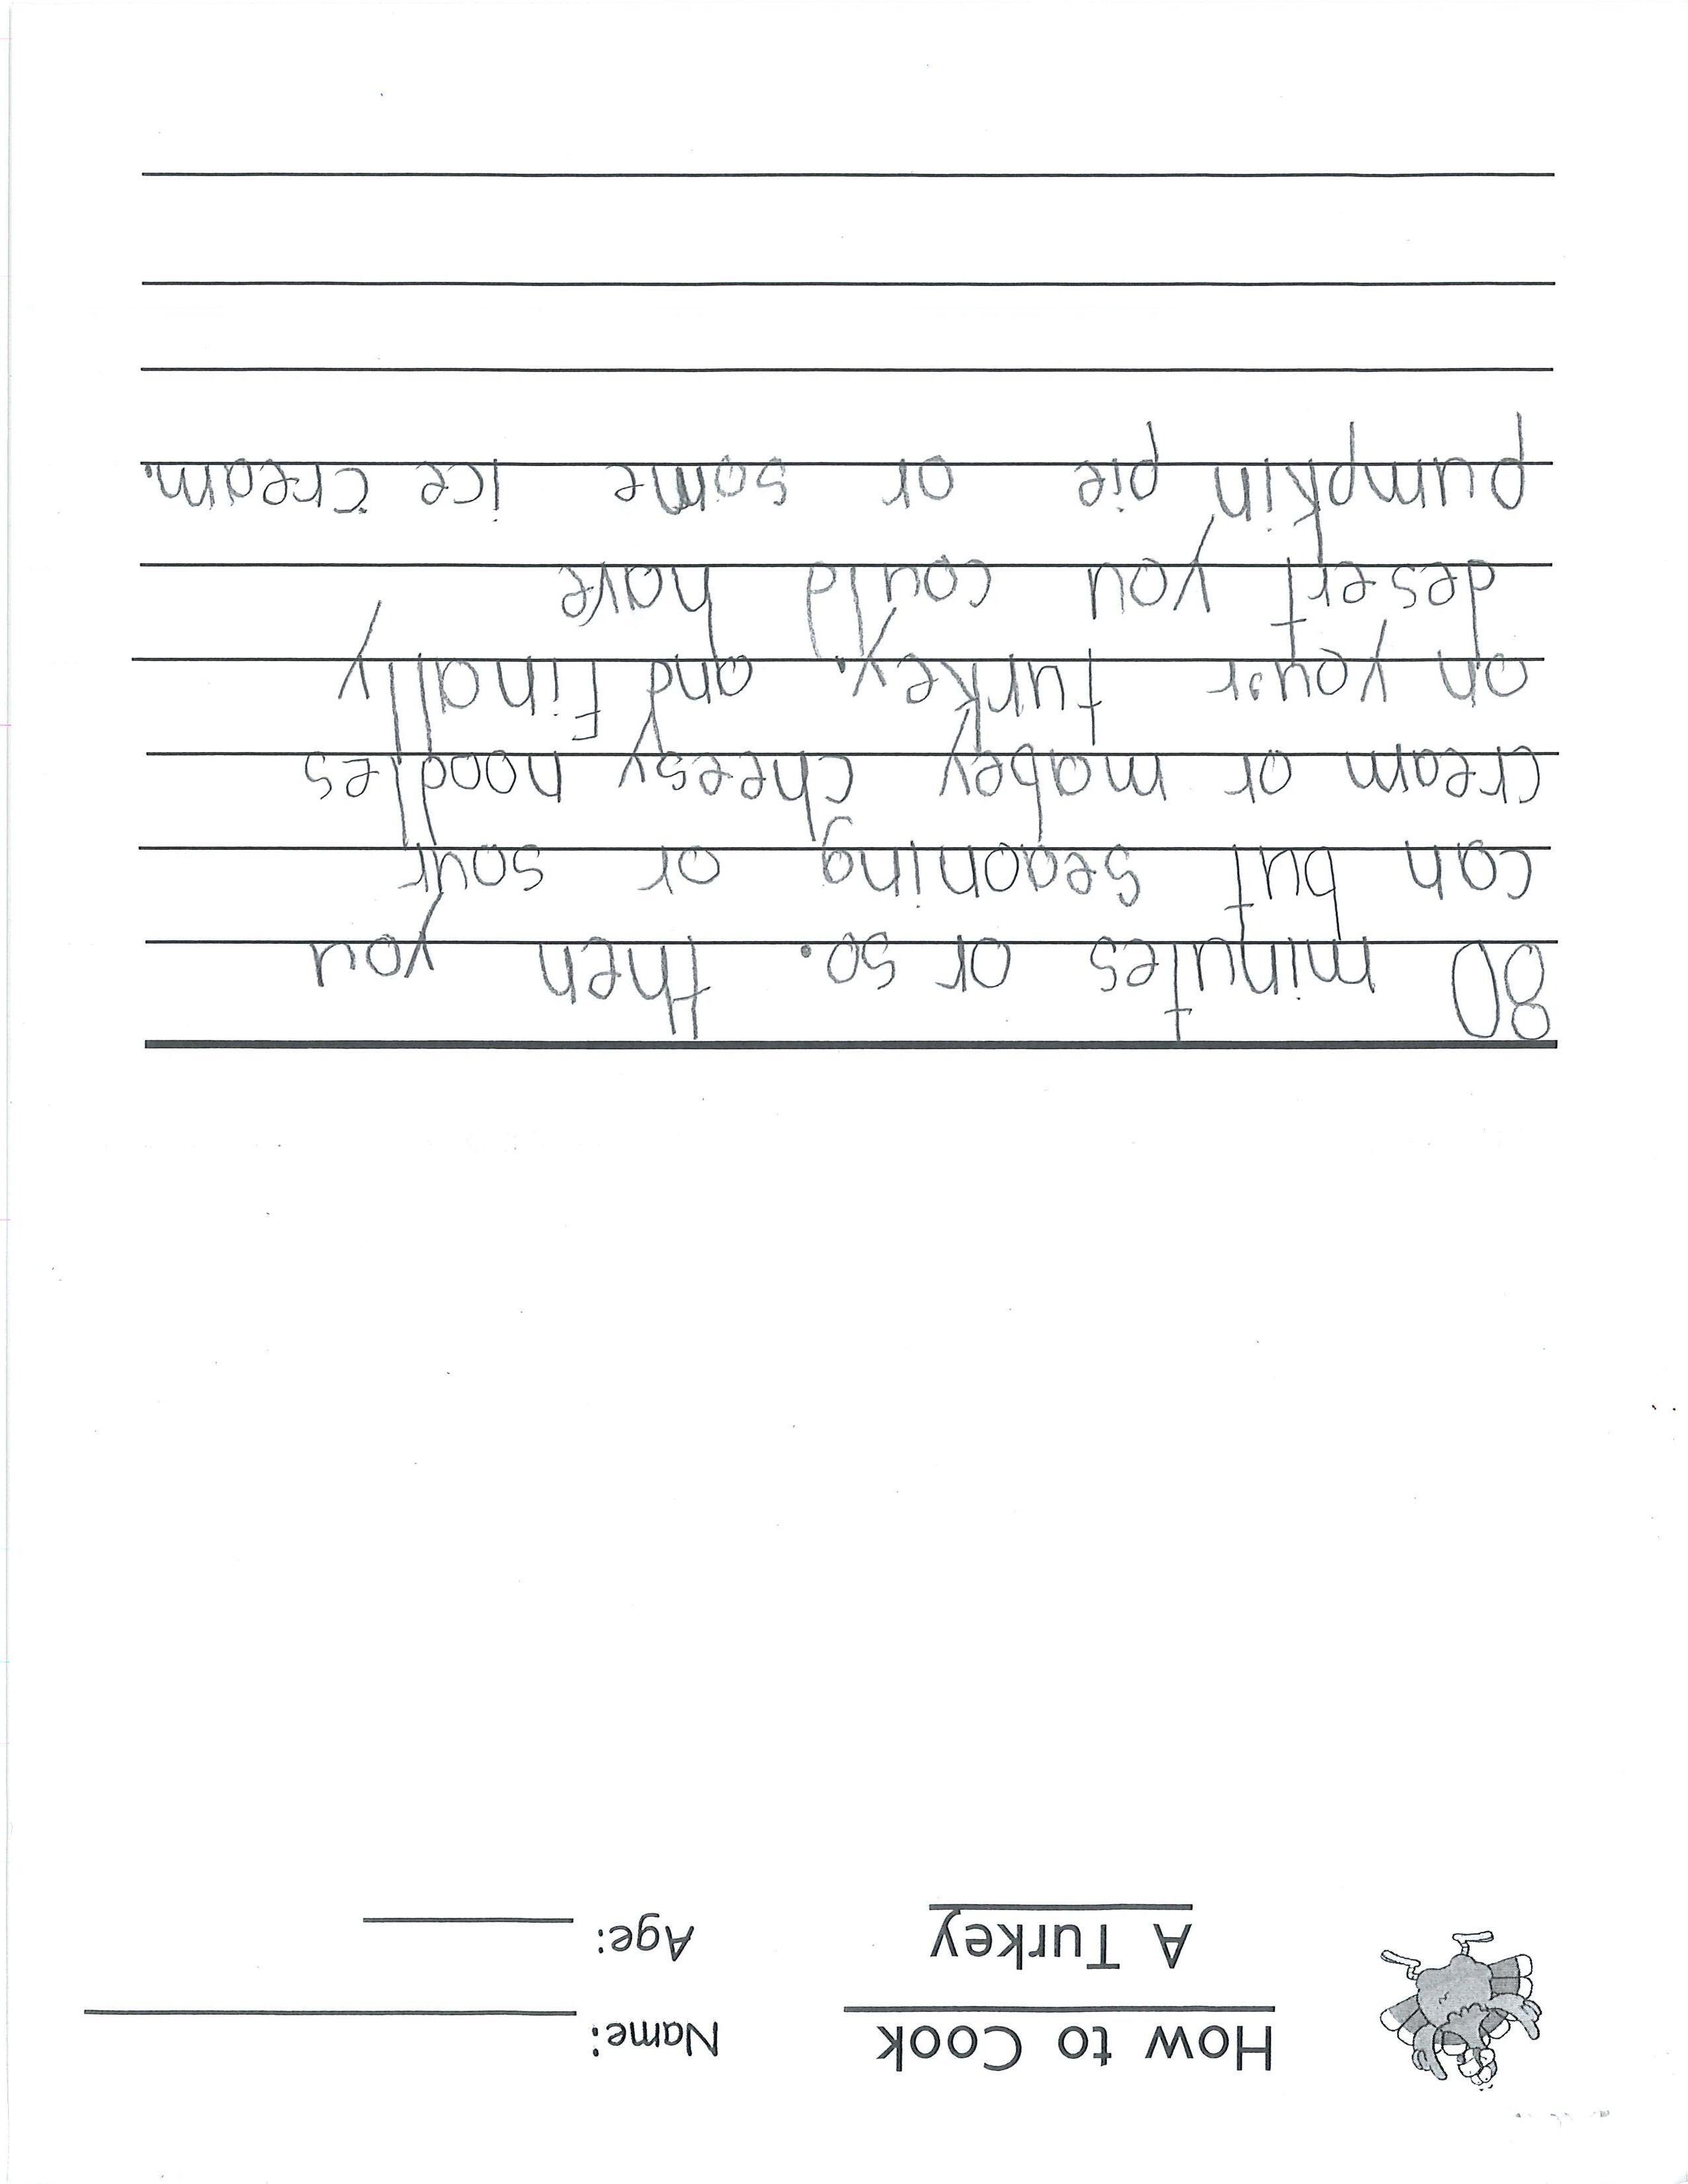 How to Cook
A Turkey
Name:
Age:
80 minutes or so. then you
can but seaoning or sour
cream or mabey cheesy noodles
on your turkey. and Finally
desert you could have
pumpkin pie or some ice cream.